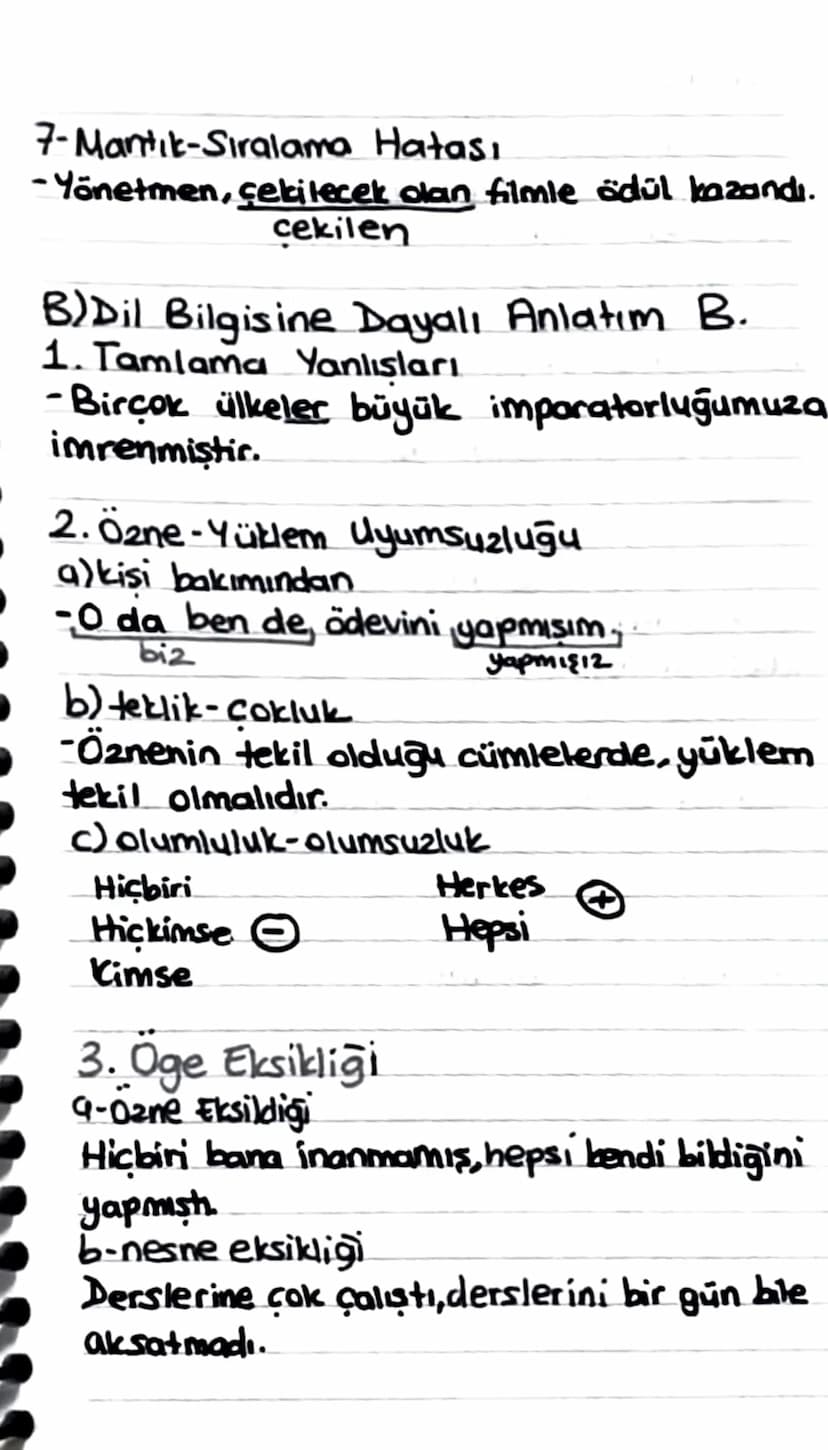 7-Mantık-Sıralama Hatası
-Yönetmen, çekilecek olan filmle ödül kazandı.
çekilen
B)Dil Bilgisine Dayalı Anlatım B.
1. Tamlama Yanlışları
-Birçok ülkeler büyük imparatorluğumuza
imrenmiştir.
2. Özne-Yüklem Uyumsuzluğu
a)kişi bakımından
-O da ben de, ödevini yapmışım.
biz yapmışız
b) teklik-çokluk
-Öznenin tekil olduğu cümlelerde, yüklem
tekil olmalıdır.
c) olumluluk-olumsuzluk
Hiçbiri Herkes +
Hiçkimse - Hepsi
Kimse
3. Öge Eksikliği
a-Özne Eksildiği
Hiçbiri bana inanmamış, hepsi kendi bildiğini
yapmıştı.
b-nesne eksikliği
Derslerine çok çalıştı, derslerini bir gün bile
aksatmadı.